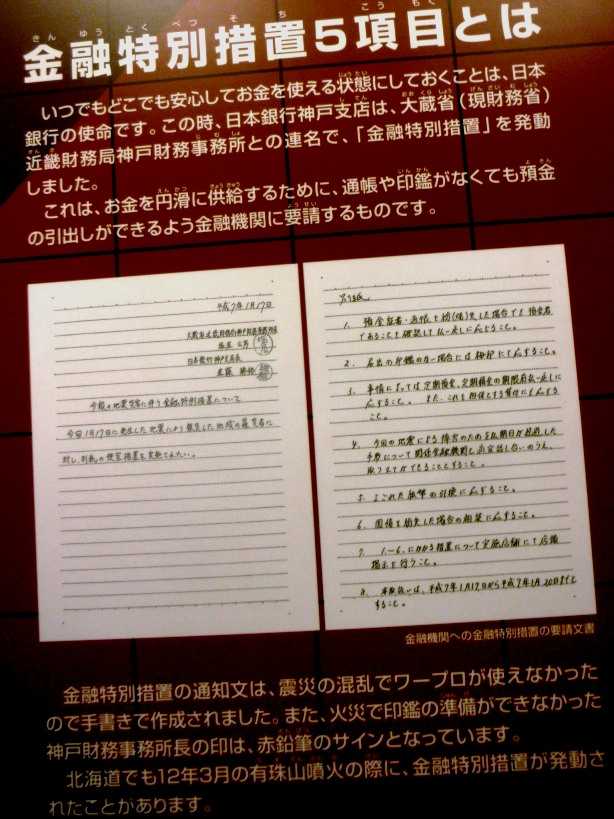 金融特別措置5項目とは
いつでもどこでも安心してお金を使える状態にしておくことは、日本
銀行の使命です。この時、日本銀行神戸支店は、大蔵省（現財務省）
近畿財務局神戸財務事務所との連名で、「金融特別措置」を発動
しました。
これは、お金を円滑に供給するために、通帳や印鑑がなくても預金
の引出しができるよう金融機関に要請するものです。
平成7年1月17日
大蔵省近畿財務局神戸財務事務所長
日本銀行神戸支店長
今般の地震災害に伴う金融特別措置について
今回1月17日に発生した地震により被災した地域の罹災者に
対し、別紙の便宜措置を実施されたい。
別紙
1. 預金証書・通帳を紛(焼)失した場合でも預金者
であることを確認して払い戻しに応ずること。
2. 届出の印鑑のない場合には拇印にて応ずること。
3. 事情によっては定期預金、定期積金の期限前払い戻しに
応ずること。また、これを担保とする貸付にも応ずる
こと。
4. 今回の地震による障害のため支払期日が経過した
手形について関係金融機関と適宜話し合いのうえ、
取り立てができることとすること。
5. よごれた紙幣の引換に応ずること。
6. 国債を紛失した場合の相談に応ずること。
7. 1.～6.にかかる措置について実施店舗にて店頭
掲示を行うこと。
8. 平成7年1月17日から平成7年1月20日まで
すること。
金融機関への金融特別措置の要請文書
金融特別措置の通知文は、震災の混乱でワープロが使えなかった
ので手書きで作成されました。また、火災で印鑑の準備ができなかった
神戸財務事務所長の印は、赤鉛筆のサインとなっています。
北海道でも12年3月の有珠山噴火の際に、金融特別措置が発動さ
れたことがあります。